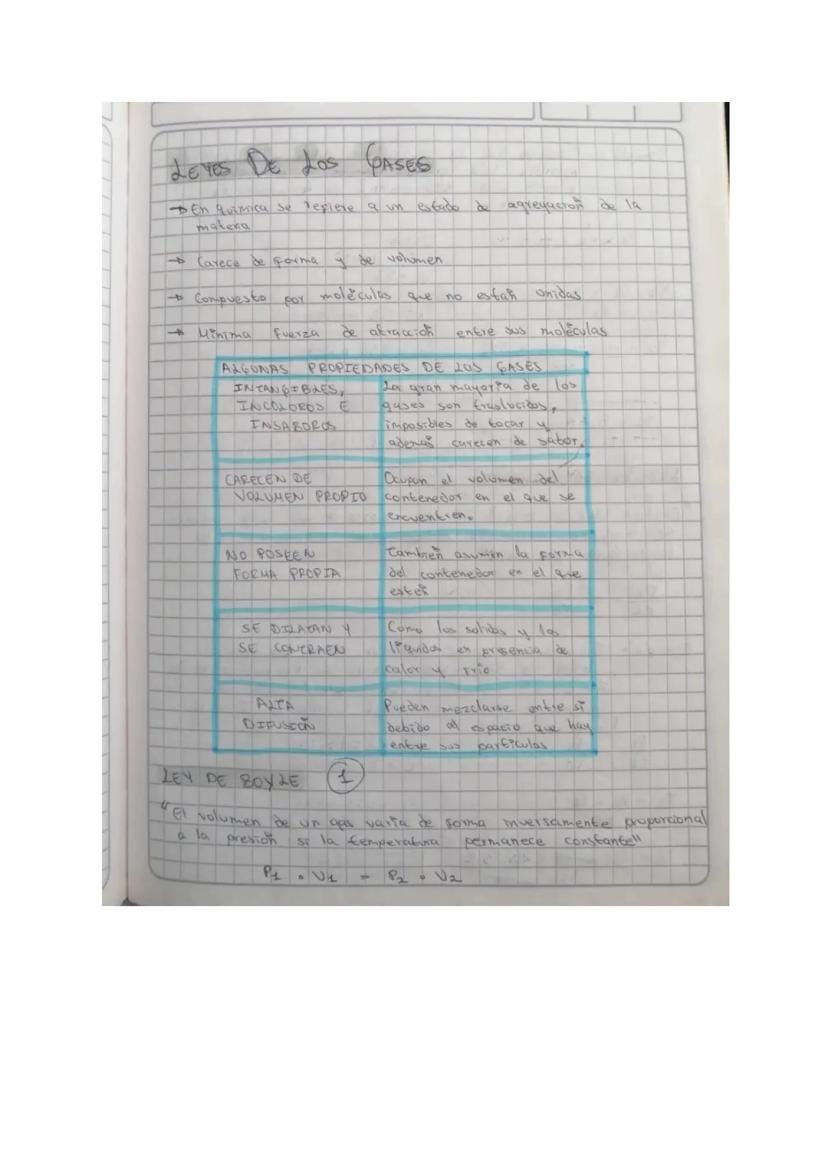 LEYES DE LOS GASES
→ En química se refiere a un estado de agregación de la
materia
→ Carece de forma y de volumen
→ Compuesto por moléculas que no están unidas
→ Mínima fuerza de atracción entre sus moléculas
ALGUNAS PROPIEDADES DE LOS GASES
INTANGIBLES,
INCOLOROS E
INSABOROS
La gran mayoría de los
gases son traslucidos,
imposibles de tocar y
además carecen de sabor.
CARECEN DE
VOLUMEN PROPIO
Ocupan el volumen del
contenedor en el que se
encuentren.
NO POSEEN
FORMA PROPIA
También asumen la forma
del contenedor en el que
estén
SE DILATAN Y
SE CONTRAEN
Como los solidos y los
liquidos en presencia de
calor y frío
ALTA
DIFUSIÓN
Pueden mezclarse entre sí
debido al espacio que hay
entre sus partículas
LEY DE BOYLE 1
"El volumen de un gas varía de forma inversamente proporcional
a la presión si la temperatura permanece constante"
P1 . V1 = P2 . V2